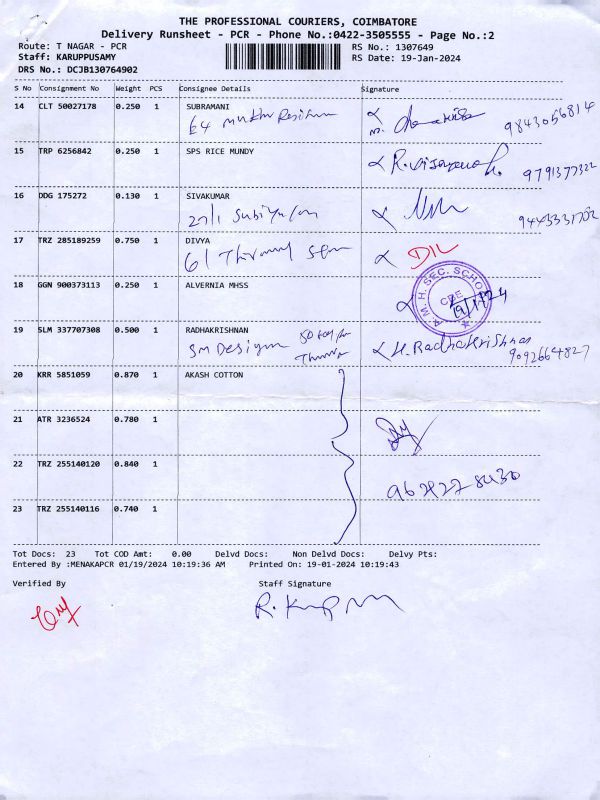 THE PROFESSIONAL COURIERS, COIMBATORE
Delivery Runsheet - PCR - Phone No.:0422-3505555 - Page No.:2
Route: T NAGAR - PCR
RS No.: 1307649
Staff: KARUPPUSAMY
RS Date: 19-Jan-2024
DRS No.: DCJB130764902
S No Consignment No Weight PCS Consignee Details Signature
14 CLT 50027178 0.250 1 SUBRAMANI
64
9843056814
15 TRP 6256842 0.250 1 SPS RICE MUNDY
9791377322
16 DDG 175272 0.130 1 SIVAKUMAR
27/1
9443331702
17 TRZ 285189259 0.750 1 DIVYA
61
18 GGN 900373113 0.250 1 ALVERNIA MHSS
M.H. SEC. SCHOOL
CBE
19/1/24
19 SLM 337707308 0.500 1 RADHAKRISHNAN
SM Design
H. Radhakrishnan
9092664827
20 KRR 5851059 0.870 1 AKASH COTTON
21 ATR 3236524 0.780 1
22 TRZ 255140120 0.840 1
23 TRZ 255140116 0.740 1
Tot Docs: 23 Tot COD Amt: 0.00 Delvd Docs: Non Delvd Docs: Delvy Pts:
Entered By :MENAKAPCR 01/19/2024 10:19:36 AM Printed On: 19-01-2024 10:19:43
Verified By Staff Signature